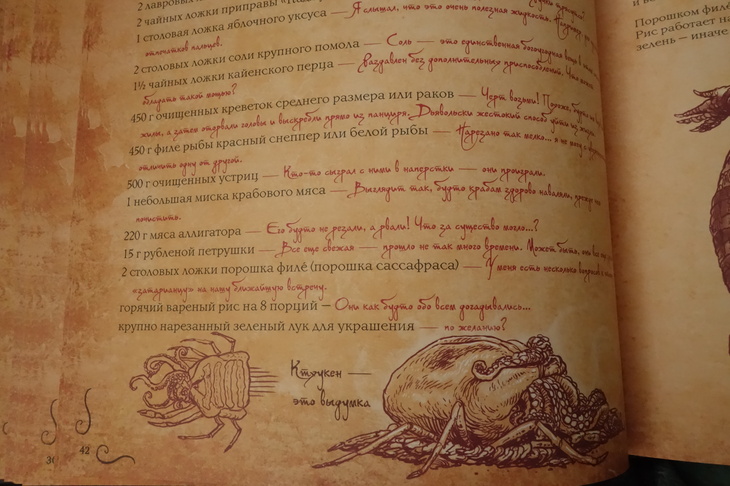 2 лавровых
2 чайных ложки приправы
1 столовая ложка яблочного уксуса — Я слышал, что это очень полезная жидкость.
отпечатков пальцев.
2 столовых ложки соли крупного помола — Соль — это единственная богоугодная вещь в
1½ чайных ложки кайенского перца — Раздавлен без дополнительных приспособлений. Что может
обладать такой мощью?
450 г очищенных креветок среднего размера или раков — Черт возьми! Похоже,
жили, а затем оторвали головы и выскребли прямо из панциря. Дьявольски жестокий способ уйти из жизни.
450 г филе рыбы красный снеппер или белой рыбы — Нарезано так мелко... я не могу
отличить одну от другой.
500 г очищенных устриц — Кто-то сыграл с ними в наперстки — они проиграли.
1 небольшая миска крабового мяса — Выглядит так, будто крабам здорово наваляли, прежде чем
почистить.
220 г мяса аллигатора — Его будто не резали, а рвали! Что за существо могло...?
15 г рубленой петрушки — Все еще свежая — прошло не так много времени. Может быть, он все еще
2 столовых ложки порошка филе́ (порошка сассафраса) — У меня есть несколько вопросов
на нашу ближайшую встречу.
горячий вареный рис на 8 порций — Они как будто обо всем догадывались...
крупно нарезанный зеленый лук для украшения — по желанию?
Ктукен —
это выдумка
42
Порошком филе
Рис работает на
зелень — иначе